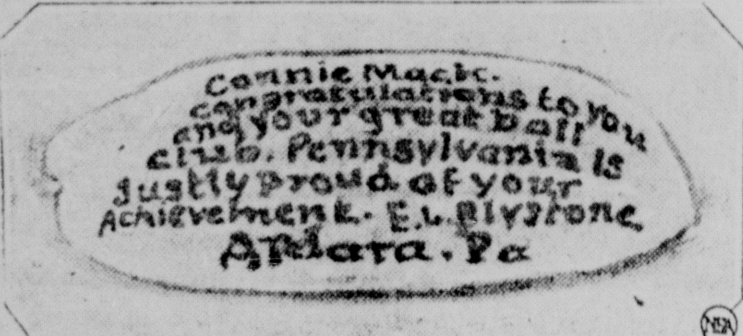 Connie Mack.
congratulations to you
and your great ball
club. Pennsylvania is
justly proud of your
Achievement. E. L. Blystone
Ardara. Pa
NEA